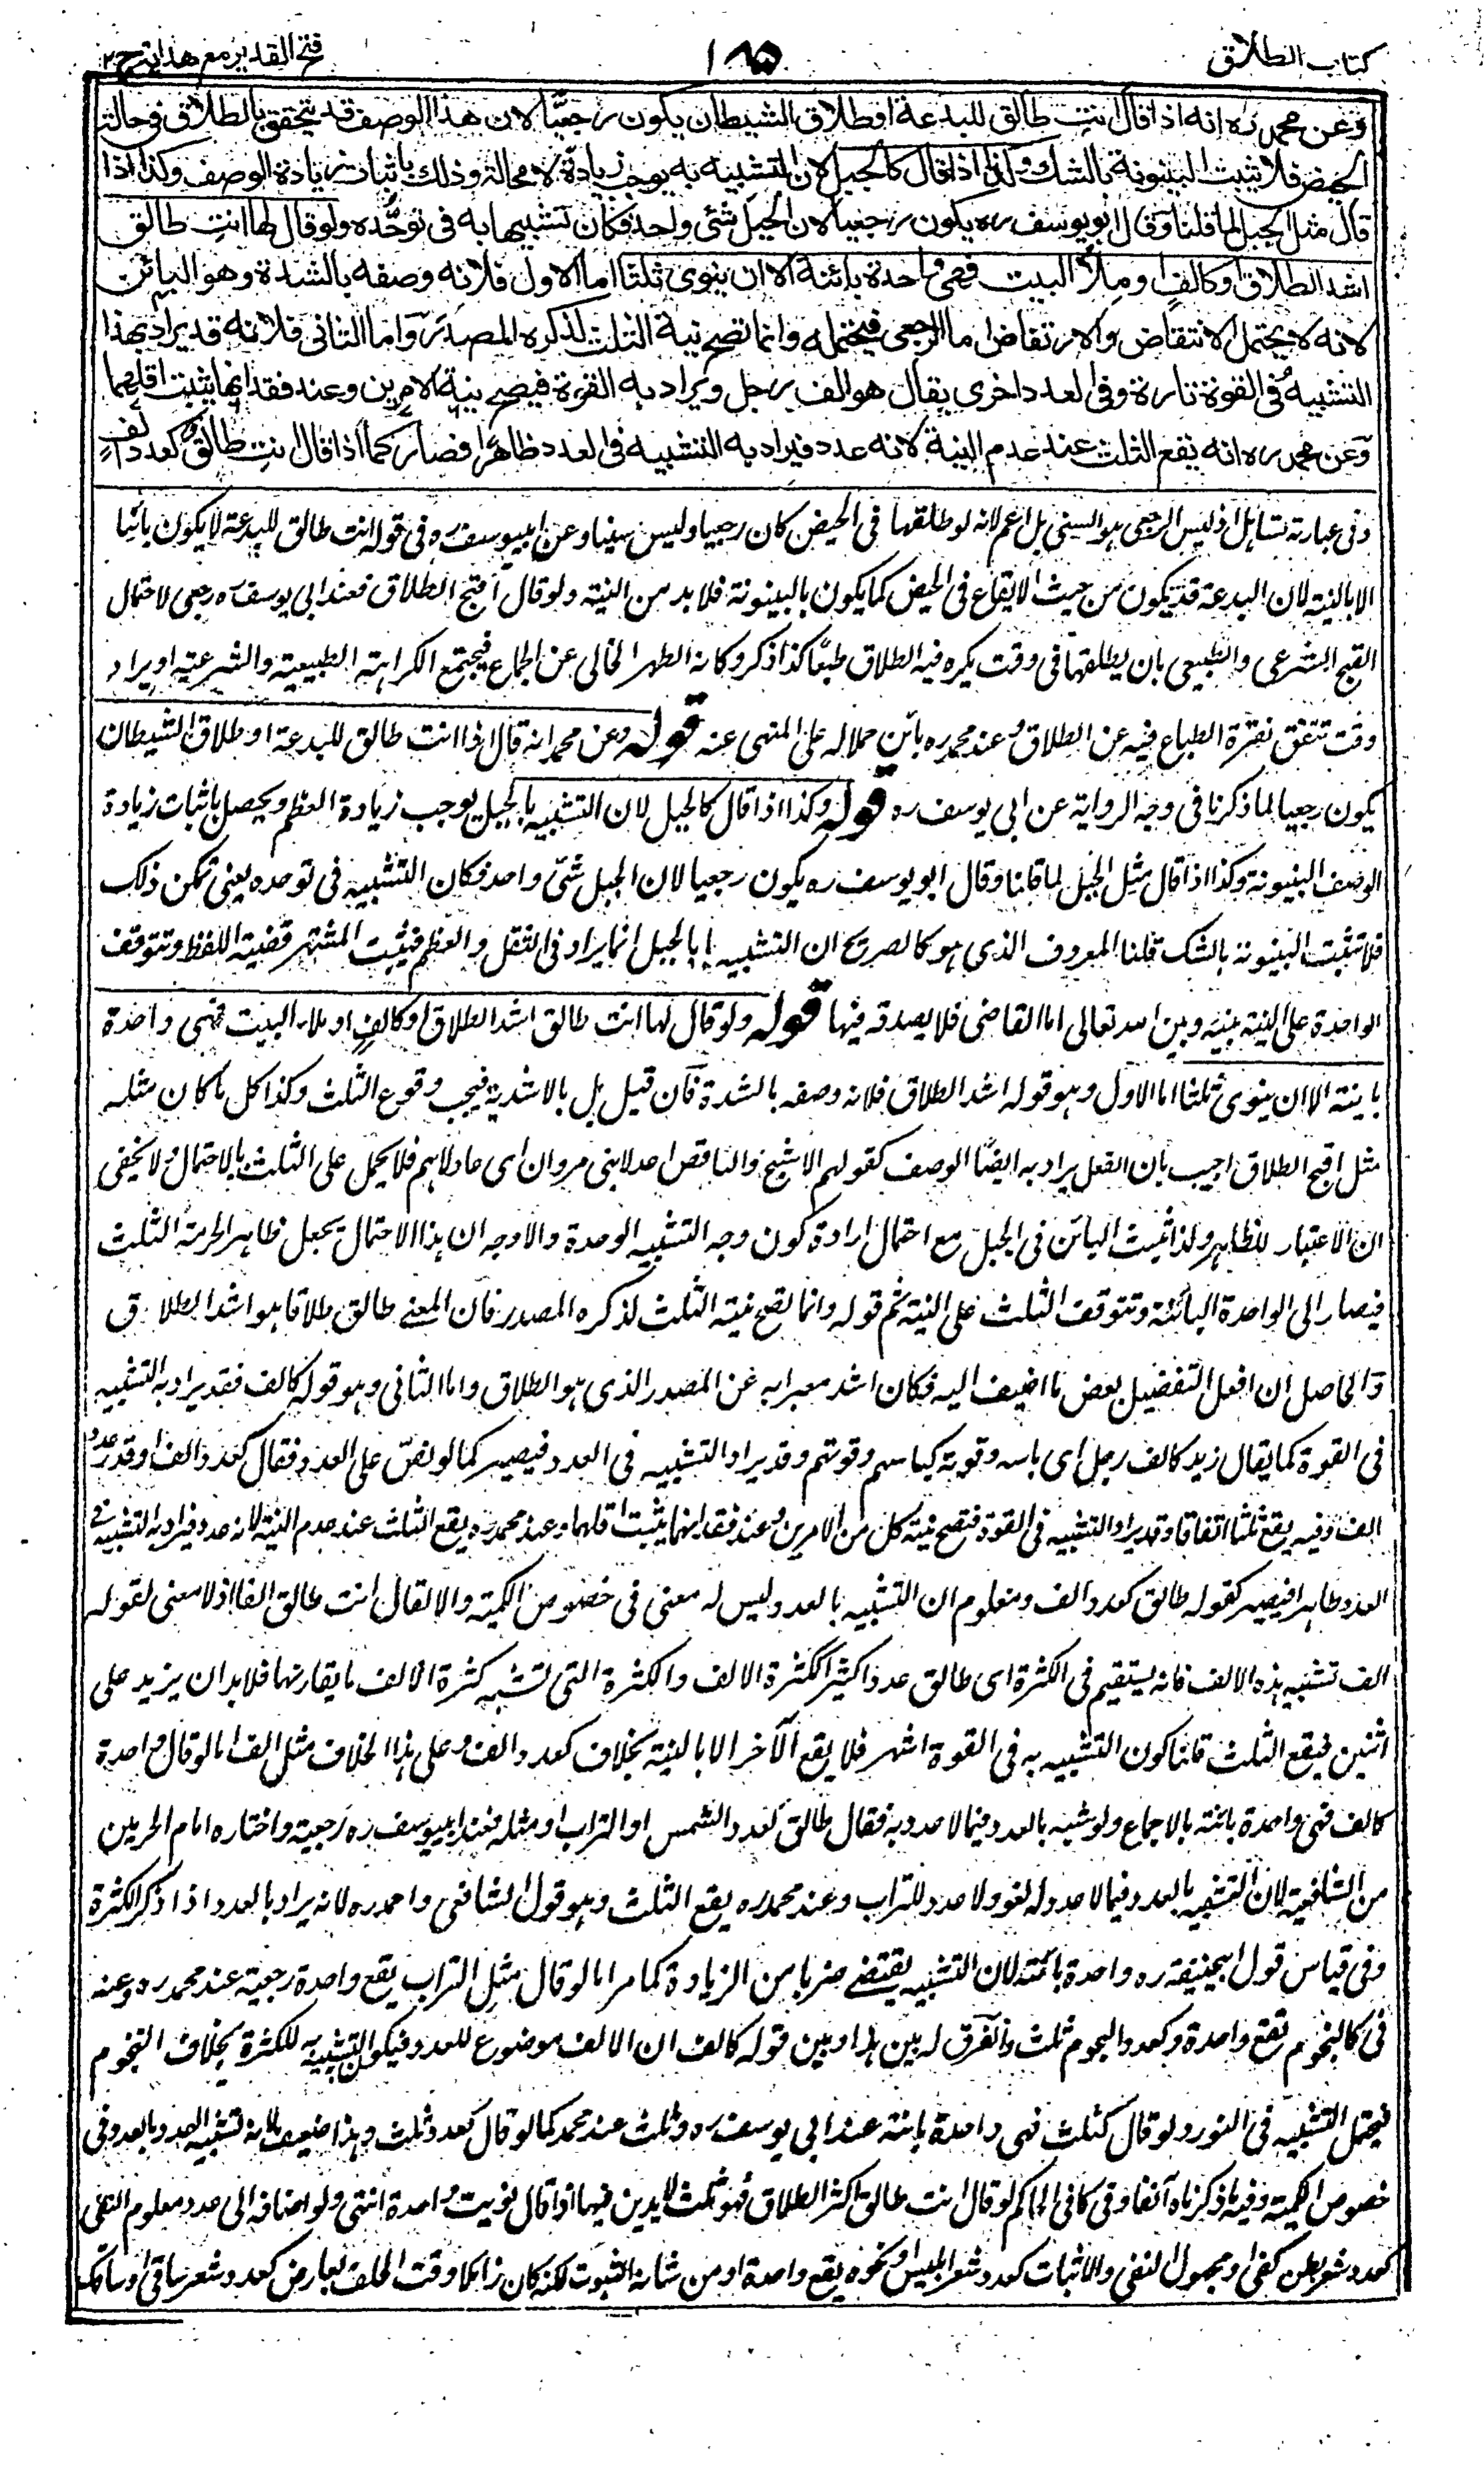 كتاب الطلاق
١٨٥
فتح القدير مع هدايه ج ٢
وعن محمد ره انه اذا قال انت طالق للبدعة او طلاق الشيطان يكون رجعيًّا لان هذا الوصف قد يتحقق بالطلاق في حالة
الحيض فلا يثبت البينونة بالشك وكذا اذا قال كالجبل لان التشبيه به يوجب زيادة لا محالة وذلك باثبات زيادة الوصف وكذا اذا
قال مثل الجبل لما قلنا وقال ابو يوسف ره يكون رجعيا لان الجبل شئ واحد فكان تشبيها به فى توحُّده ولو قال لها انتِ طالق
اشد الطلاق او كالفٍ او ملأ البيت فهى واحدة بائنة الا ان ينوى ثلثا اما الاول فلانه وصفه بالشدة وهو البائن
لانه لا يحتمل الانتقاض والارتفاض اما الرجعى فيحتمله وانما تصح نية الثلث لذكره المصدر واما الثانى فلانه قد يراد بهذا
التشبيه فى القوة تارة وفى العدد اخرى يقال هو الف رجل ويراد به القوة فيصح نية الامرين وعند فقدانها يثبت اقلهما
وعن محمد ره انه يقع الثلث عند عدم النية لانه عدد فيراد به التشبيه فى العدد ظاهرًا فصار كما اذا قال انتِ طالق كعدد الفٍ
وفى عبارته تساهل اذ ليس الرجعى هو السنى بل اعم لانه لو طلقها فى الحيض كان رجعيا وليس سنيا وعن ابيوسف ره فى قوله انت طالق للبدعة لا يكون بائنا
الا بالنية لان البدعة قد يكون من حيث الايقاع فى الحيض كما يكون بالبينونة فلا بد من النية ولو قال اقبح الطلاق فعند ابى يوسف ره رجعى لاحتمال
القبح الشرعى والطبيعى بان يطلقها فى وقت يكره فيه الطلاق طبعًا كذا ذكر وكانه الطهر الخالى عن الجماع فيجتمع الكراهة الطبيعية والشرعية او يراد
وقت تتفق نفرة الطباع فيه عن الطلاق وعند محمد ره بائن حملا له على المنهى عنه قوله وعن محمد انه قال اذا انت طالق للبدعة او طلاق الشيطان
يكون رجعيا لما ذكرنا فى وجه الرواية عن ابى يوسف ره قوله وكذا اذا قال كالجبل لان التشبيه بالجبل يوجب زيادة العظم ويحصل باثبات زيادة
الوصف البينونة وكذا اذا قال مثل الجبل لما قلنا وقال ابو يوسف ره يكون رجعيا لان الجبل شئ واحد فكان التشبيه فى توحده يعنى يمكن ذلك
فلا تثبت البينونة بالشك قلنا المعروف الذى هو كالصريح ان التشبيه بالجبل انما يراد فى الثقل والعظم فيثبت المشتهر قضية اللفظ وتتوقف
الواحدة على النية بينه وبين الله تعالى اما القاضى فلا يصدقه فيها قوله ولو قال لها انت طالق اشد الطلاق او كالفٍ او ملاء البيت فهى واحدة
باينة الا ان ينوى ثلثا اما الاول وهو قوله اشد الطلاق فلانه وصفه بالشدة فان قيل بل بالاشدية فيجب وقوع الثلث وكذا كل ما كان مثله
مثل اقبح الطلاق اجيب بان افعل يراد به ايضًا الوصف كقولهم الاشج والناقص اعدلا بنى مروان اى عادلاهم فلا يحمل على الثلث بالاحتمال ولا يخفى
ان الاعتبار للظاهر ولذا ثبت البائن فى الجبل مع احتمال ارادة كون وجه التشبيه الوحدة والاوجه ان هذا الاحتمال يجعل ظاهر الحرمة الثلث
فيصار الى الواحدة البائنة وتتوقف الثلث على النية ثم قوله وانما تصح نية الثلث لذكره المصدر فان المعنى طالق طلاقا هو اشد الطلاق
والحاصل ان افعل التفضيل بعض ما اضيف اليه فكان اشد معبرا به عن المصدر الذى هو الطلاق واما الثانى وهو قوله كالف فقد يراد به التشبيه
فى القوة كما يقال زيد كالف رجل اى باسه وقوته كباسهم وقوتهم وقد يراد التشبيه فى العدد فيصير كما لو نصّ على العدد فقال كعدد الف او قدر عدد
الف وفيه يقع ثلثا اتفاقا وقد يراد التشبيه فى القوة فتصح نية كل من الامرين وعند فقدانها يثبت اقلهما وعند محمد ره يقع الثلث عند عدم النية لانه عدد فيراد به التشبيه فى
العدد ظاهرا فيصير كقوله طالق كعدد الف ومعلوم ان التشبيه بالعدد ليس له معنى فى خصوص الكمية والا لقال انت طالق الفا اذ لا معنى لقوله
الف تشبه هذه الالف فانه يستقيم فى الكثرة اى طالق عددا كثيرا ككثرة الالف والكثرة التى تشبه كثرة الالف ما يقاربها فلا بد ان يزيد على
اثنين فيقع الثلث قلنا كون التشبيه به فى القوة اشهر فلا يقع الآخر الا بالنية بخلاف كعدد الف وعلى هذا الخلاف مثل الف اما لو قال واحدة
كالف فهى واحدة بائنة بالاجماع ولو شبه بالعدد فيما لا عدد به فقال طالق كعدد الشمس او التراب او مثله فعند ابيوسف ره رجعية واختاره امام الحرمين
من الشافعية لان التشبيه بالعدد فيما لا عدد له لغو ولا عدد للتراب وعند محمد ره يقع الثلث وهو قول الشافعى واحمد ره لانه يراد بالعدد اذا ذكر الكثرة
وفى قياس قول ابيحنيفة ره واحدة بائنة لان التشبيه يقتضى ضربا من الزيادة كما مر اما لو قال مثل التراب يقع واحدة رجعية عند محمد ره وعنه
فى كالنجوم تقع واحدة وكعدد النجوم ثلث والفرق له بين هذا وبين قوله كالف ان الالف موضوع للعدد فيكون التشبيه للكثرة بخلاف النجوم
فيحتمل التشبيه فى النور ولو قال كثلث فهى واحدة بائنة عند ابى يوسف ره وثلث عند محمد كما لو قال كعدد ثلث وهذا ضعيف لانه تشبيه العدد بالعدد فى
خصوص الكمية وفيه ما ذكرناه آنفا وفى كافى الحاكم لو قال انت طالق اكثر الطلاق فهو ثلث لا يدين فيها اذا قال نويت واحدة انتهى ولو اضافه الى عدد معلوم النفى
كعدد شعر بطن كفى او مجهول النفى والاثبات كعدد شعر ابليس او نحوه يقع واحدة او من شانه الثبوت لكنه كان زائلا وقت الحلف بعارض كعدد شعر ساقى او ساقك